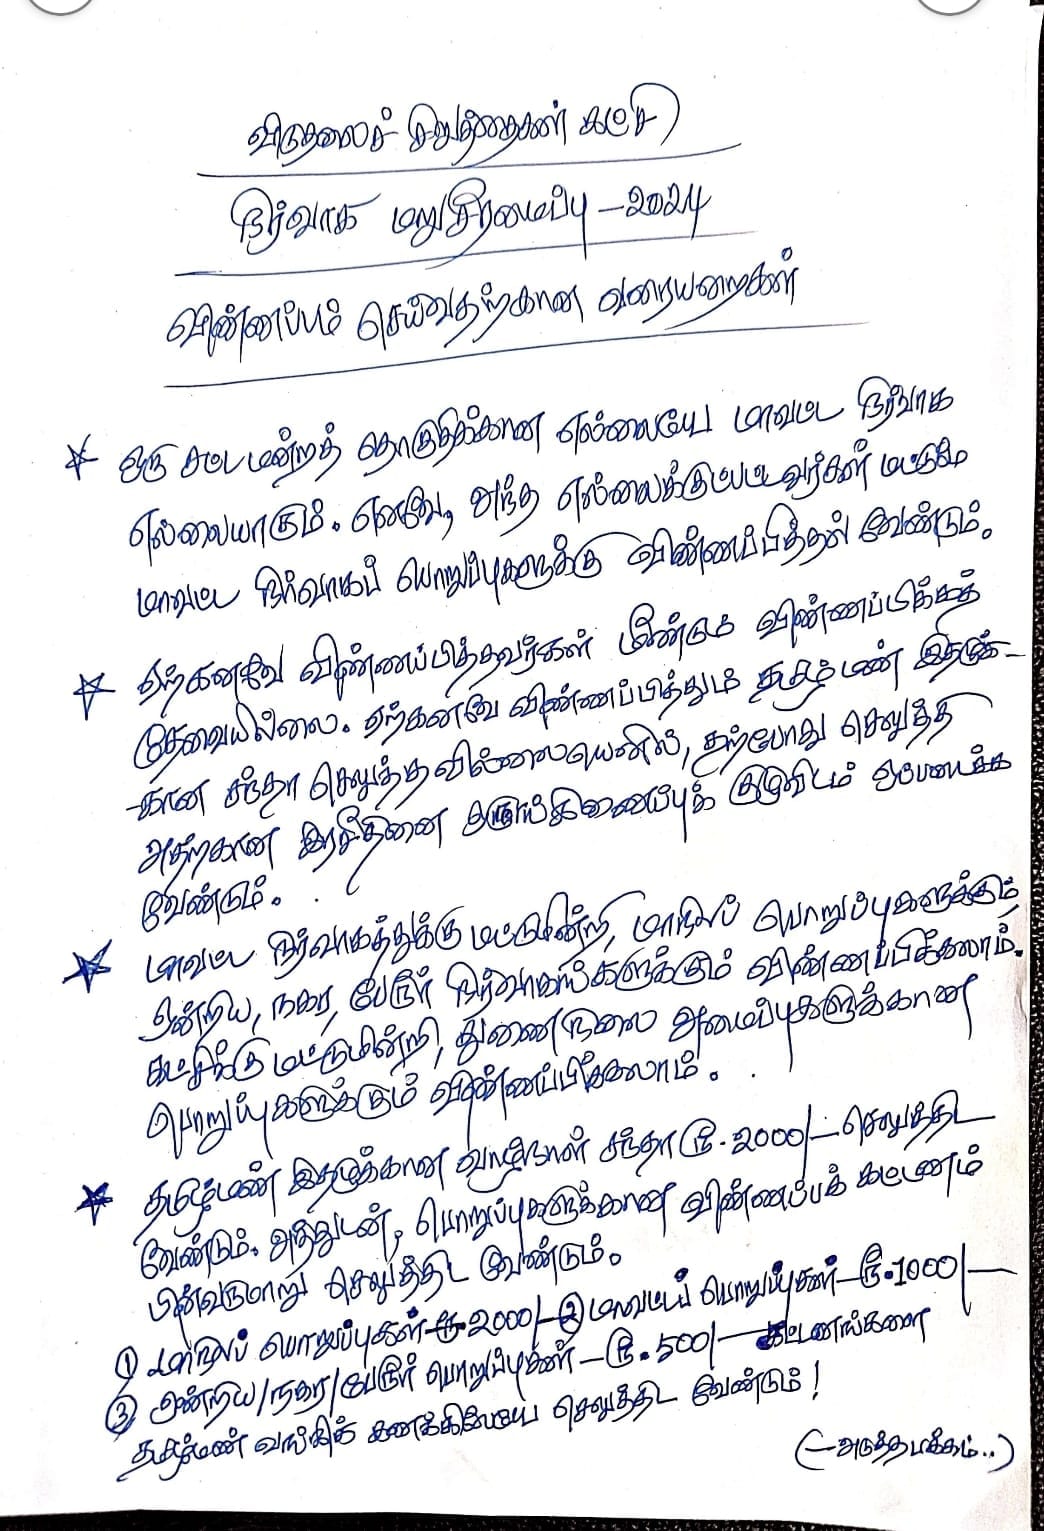 விடுதலைச் சிறுத்தைகள் கட்சி
நிர்வாக மறுசீரமைப்பு - 2024
விண்ணப்பம் செய்வதற்கான வரையறைகள்
ஒரு சட்டமன்றத் தொகுதிக்கான எல்லையே மாவட்ட நிர்வாக
எல்லையாகும். எனவே, அந்த எல்லைக்குட்பட்டவர்கள் மட்டுமே
மாவட்ட நிர்வாகப் பொறுப்புகளுக்கு விண்ணப்பித்தல் வேண்டும்.
ஏற்கனவே விண்ணப்பித்தவர்கள் மீண்டும் விண்ணப்பிக்கத்
தேவையில்லை. ஏற்கனவே விண்ணப்பித்தும் தமிழ்மண் இதழுக்-
-கான சந்தா செலுத்தவில்லையெனில், தற்போது செலுத்தி
அதற்கான இரசீதினை ஒருங்கிணைப்புக் குழுவிடம் ஒப்படைக்க
வேண்டும்.
மாவட்ட நிர்வாகத்துக்கு மட்டுமின்றி, மாநிலப் பொறுப்புகளுக்கும்
ஒன்றிய, நகர, பேரூர் நிர்வாகங்களுக்கும் விண்ணப்பிக்கலாம்.
கட்சிக்கு மட்டுமின்றி, துணைநிலை அமைப்புகளுக்கான
பொறுப்புகளுக்கும் விண்ணப்பிக்கலாம்.
தமிழ்மண் இதழுக்கான வாழ்நாள் சந்தா ரூ.2000/- செலுத்திட
வேண்டும். அத்துடன், பொறுப்புகளுக்கான விண்ணப்பக் கட்டணம்
பின்வருமாறு செலுத்திட வேண்டும்.
① மாநிலப் பொறுப்புகள் - ரூ.2000/- ② மாவட்டப் பொறுப்புகள் - ரூ.1000/-
③ ஒன்றிய/நகர/பேரூர் பொறுப்புகள் - ரூ.500/- கட்டணங்களை
தமிழ்மண் வங்கிக் கணக்கிலேயே செலுத்திட வேண்டும்!
(-அடுத்தபக்கம்..)